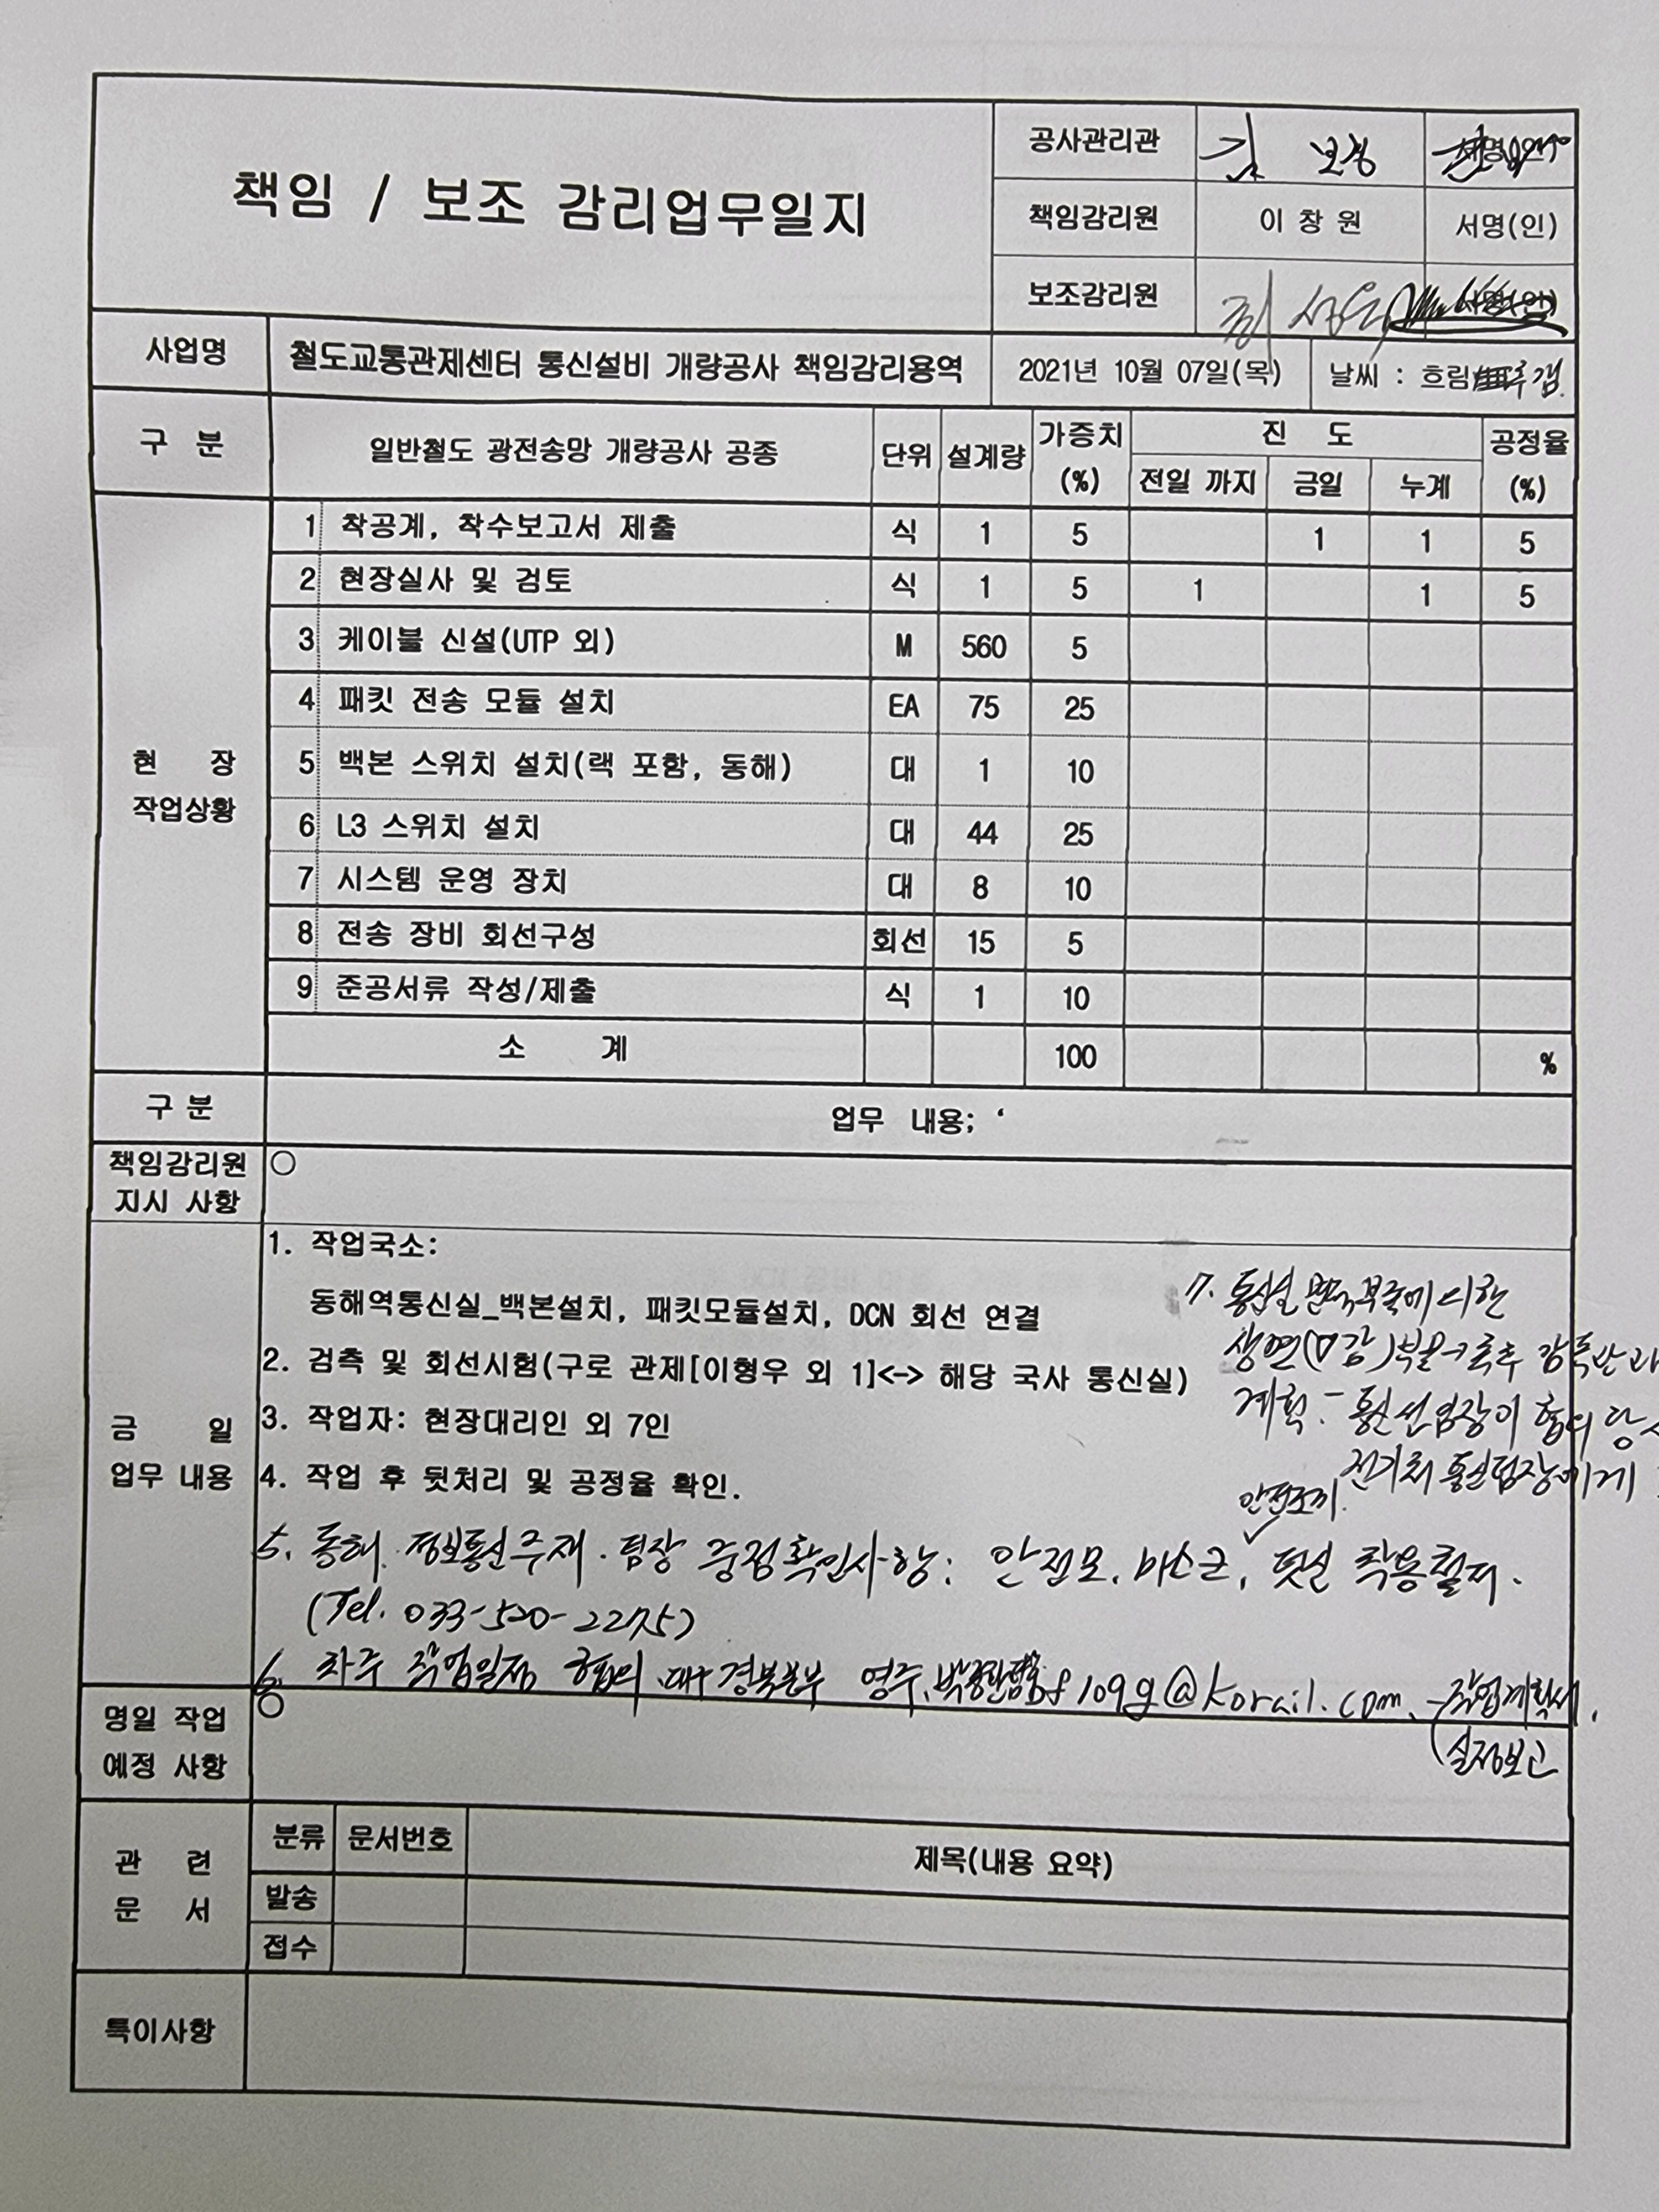 책임 / 보조 감리업무일지
공사관리관 김 보경
책임감리원 이 창 원 서명(인)
보조감리원 서명(인)
사업명 철도교통관제센터 통신설비 개량공사 책임감리용역 2021년 10월 07일(목) 날씨 : 흐림
구 분 일반철도 광전송망 개량공사 공종 단위 설계량 가증치 (%) 진 도 공정율 (%)
전일 까지 금일 누계
현 장 작업상황
1 착공계, 착수보고서 제출 식 1 5 1 1 5
2 현장실사 및 검토 식 1 5 1 1 5
3 케이블 신설(UTP 외) M 560 5
4 패킷 전송 모듈 설치 EA 75 25
5 백본 스위치 설치(랙 포함, 동해) 대 1 10
6 L3 스위치 설치 대 44 25
7 시스템 운영 장치 대 8 10
8 전송 장비 회선구성 회선 15 5
9 준공서류 작성/제출 식 1 10
소 계 100 %
구 분 업무 내용;
책임감리원 지시 사항 ○
금 일 업무 내용
1. 작업국소:
동해역통신실_백본설치, 패킷모듈설치, DCN 회선 연결
2. 검측 및 회선시험(구로 관제[이형우 외 1]<-> 해당 국사 통신실)
3. 작업자: 현장대리인 외 7인
4. 작업 후 뒷처리 및 공정율 확인.
5. 동해 정보통신주재. 팀장 중점확인사항: 안전모, 마스크, 안전조끼. 착용철저.
(Tel. 033-520-2275)
6. 차주 작업일정 협의 대구경북본부 영주, @korail.com, 작업계획서,
실정보고
7. 통신실 면적부족에 의한
계획:
전기처 통신팀장에게
명일 작업 예정 사항 ○
관 련 문 서 분류 문서번호 제목(내용 요약)
발송
접수
특이사항